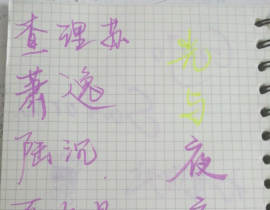 查理苏
萧逸
陆沉
光
与
夜